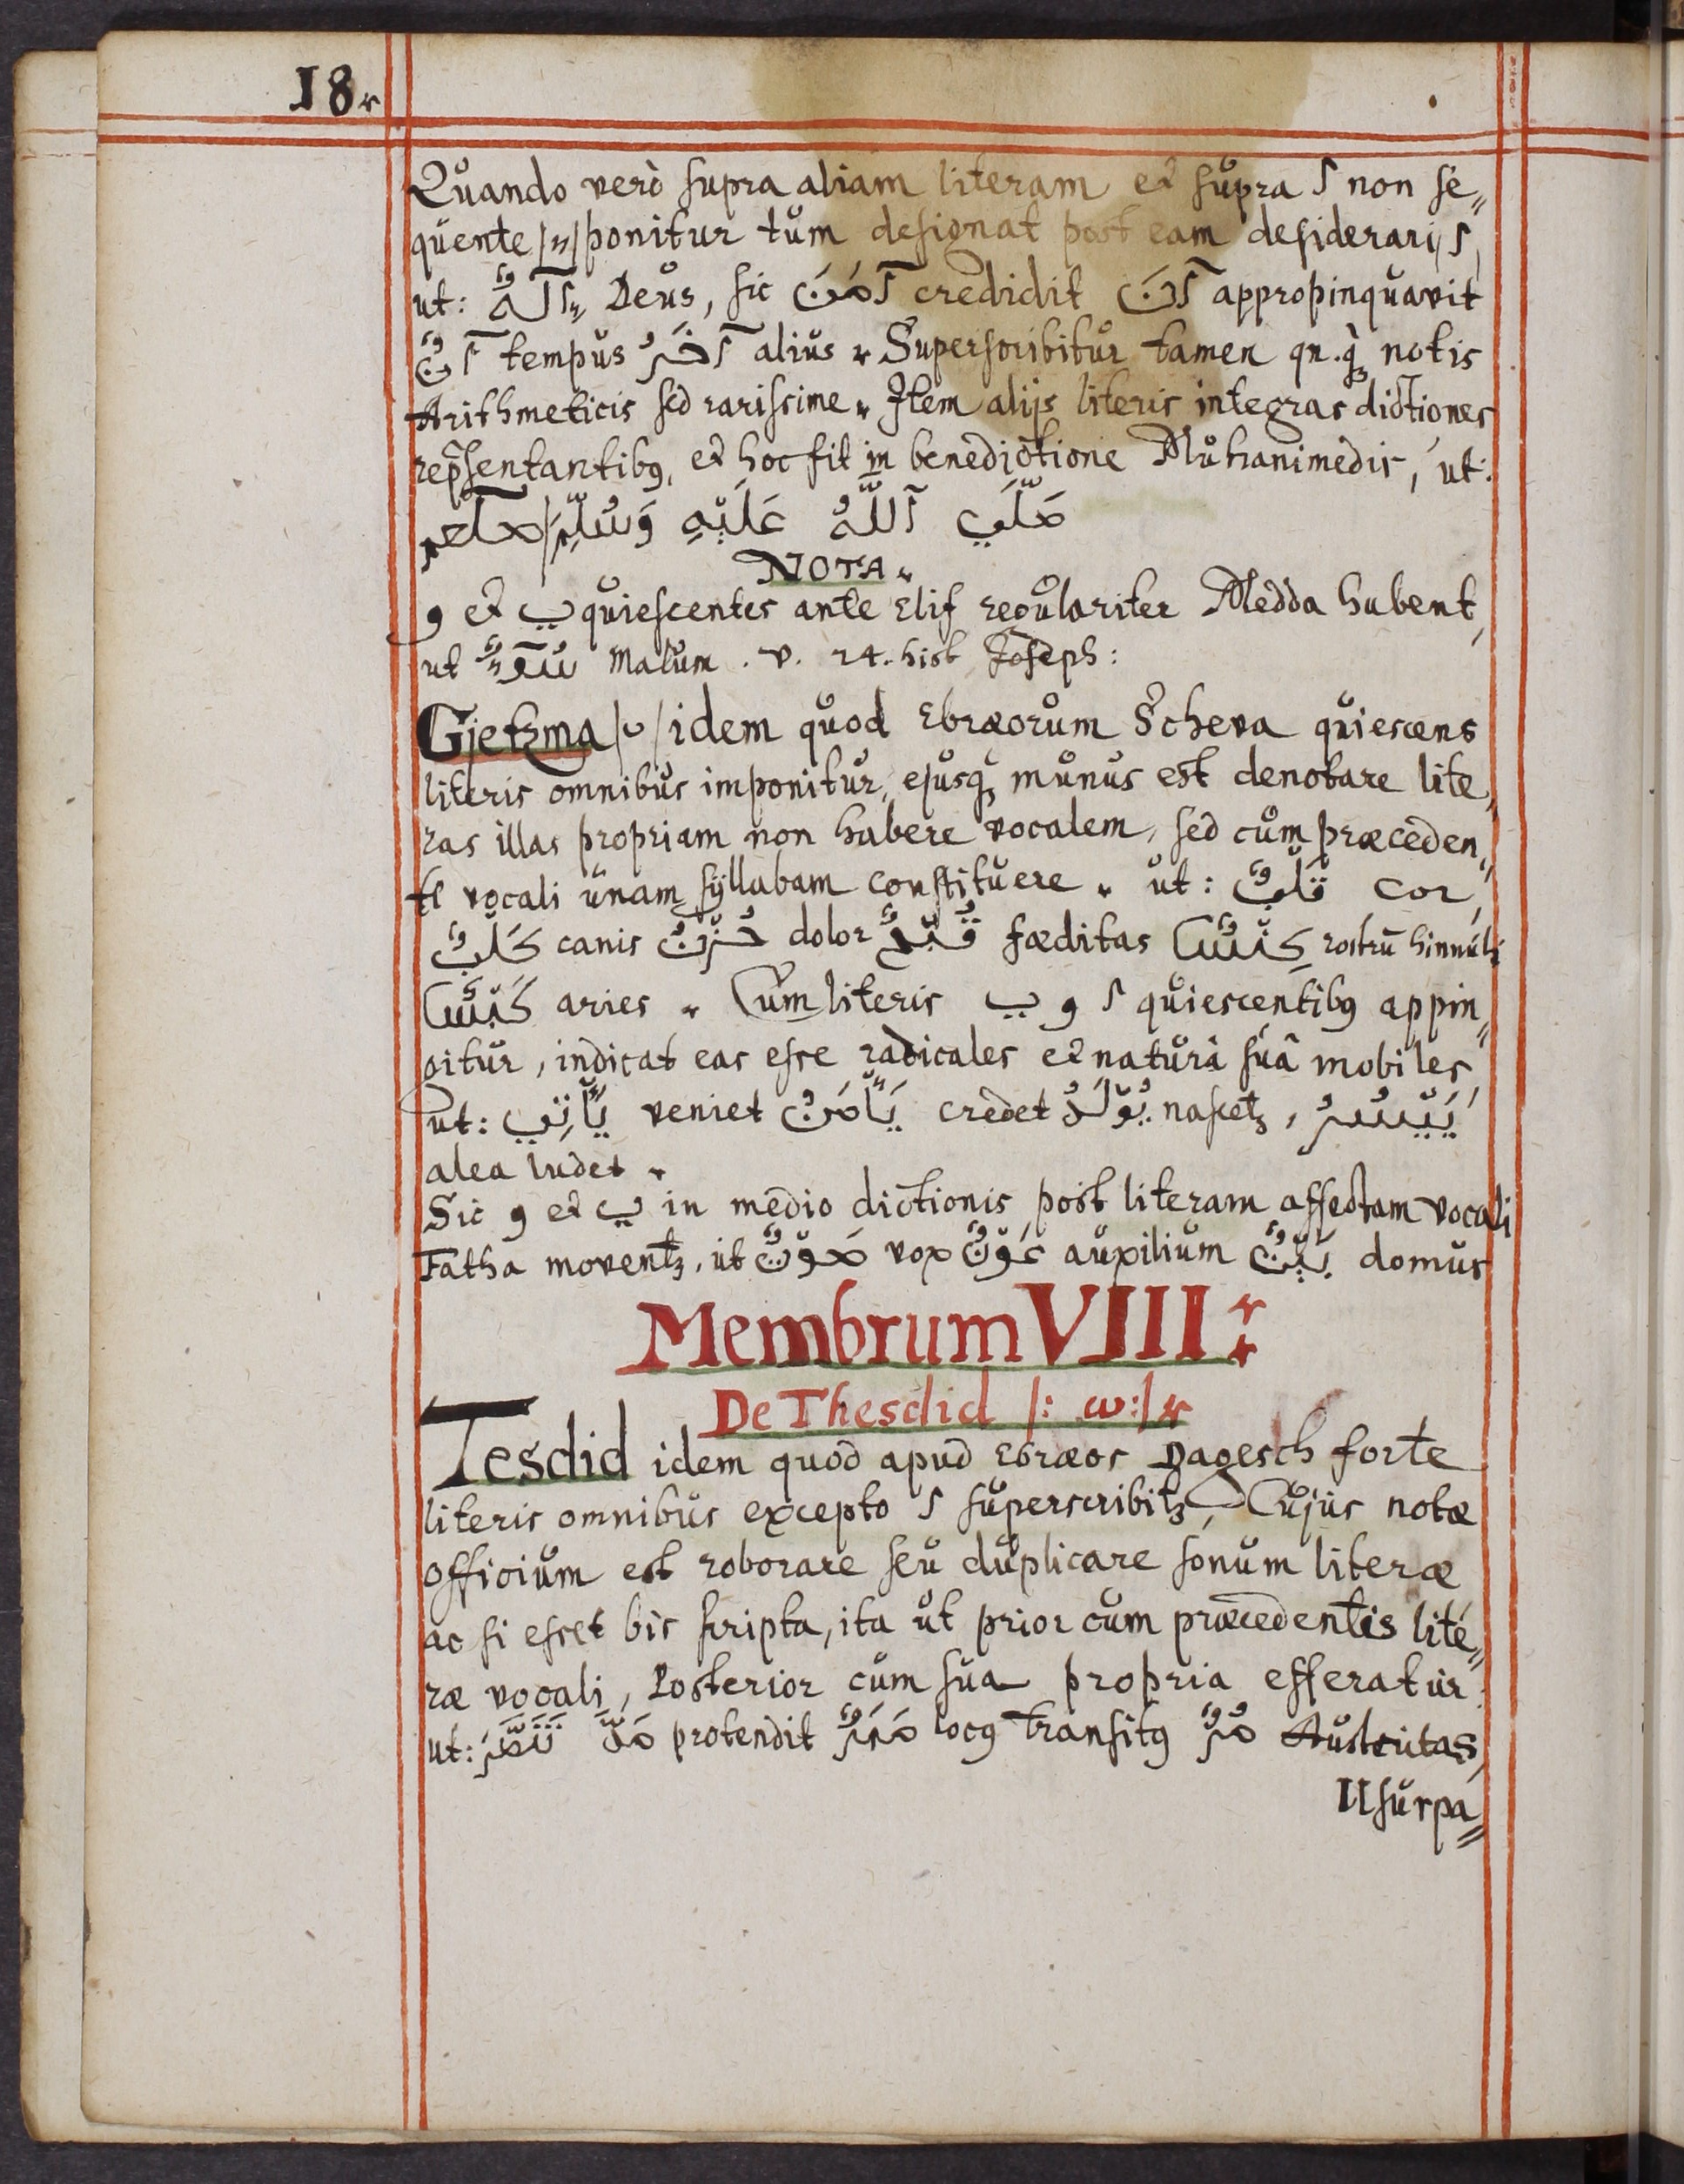 18.
Quando verò supra aliam literam et supra ا non se„
quente /ء/ ponitur tum designat post eam desiderari ا,
ut: الٓهٌ Deus, sic آمَنَ credidit آنَ appropinquavit
آنٌ tempus آخَرُ alius. Superscribitur tamen qn.q̀ꝫ notis
Arithmeticis sed rarissime. Item alijs literis integras dictiones
rep̃sentantibꝯ, et hoc fit in benedictione Muhammedis, ut:
صَلَّي ٱللَّهُ عَلَيْهِ وَسَلَّمَ / صلعم
NOTA.
و et ي quiescentes ante Elif regulariter Medda habent,
ut سُوٓءٌ malum. v. 24. hist Joseph:
Gjetzma / ْ / idem quod Ebræorum Scheva quiescens
literis omnibus imponitur, ejusqꝫ munus est denotare lite„
ras illas propriam non habere vocalem, sed cum præceden„
te vocali unam syllabam constituere. ut: قَلْبٌ cor,
كَلْبٌ canis حُزْنٌ dolor قُبْحٌ fæditas كِبْسٌ rostrũ hinnuli
كَبْشٌ aries. Cum literis ا و ي quiescentibꝯ appin„
gitur, indicat eas esse radicales et naturâ suâ mobiles,
ut: يَأْتِي veniet يَأْمَنُ credet يُوْلَدُ nascetꝫ, يَيْسُرُ
alea ludet.
Sic و et ي in medio dictionis post literam affectam vocali
Fatha moventꝫ, ut صَوْتٌ vox عَوْنٌ auxilium بَيْتٌ domus
Membrum VIII:
De Thesdid /: ّ :/.
Tesdid idem quod apud Ebræos Dagesch forte
literis omnibus excepto ا superscribitꝫ, Cujus notæ
officium est roborare seu duplicare sonum literæ
ac si esset bis scripta, ita ut prior cum præcedentis lite„
ræ vocali, Posterior cum sua propria efferatur
ut: نَصَّرَ مَدَّ protendit مَمَرٌّ locꝯ transitꝯ مُرٌّ Austeritas,
Usurpa„